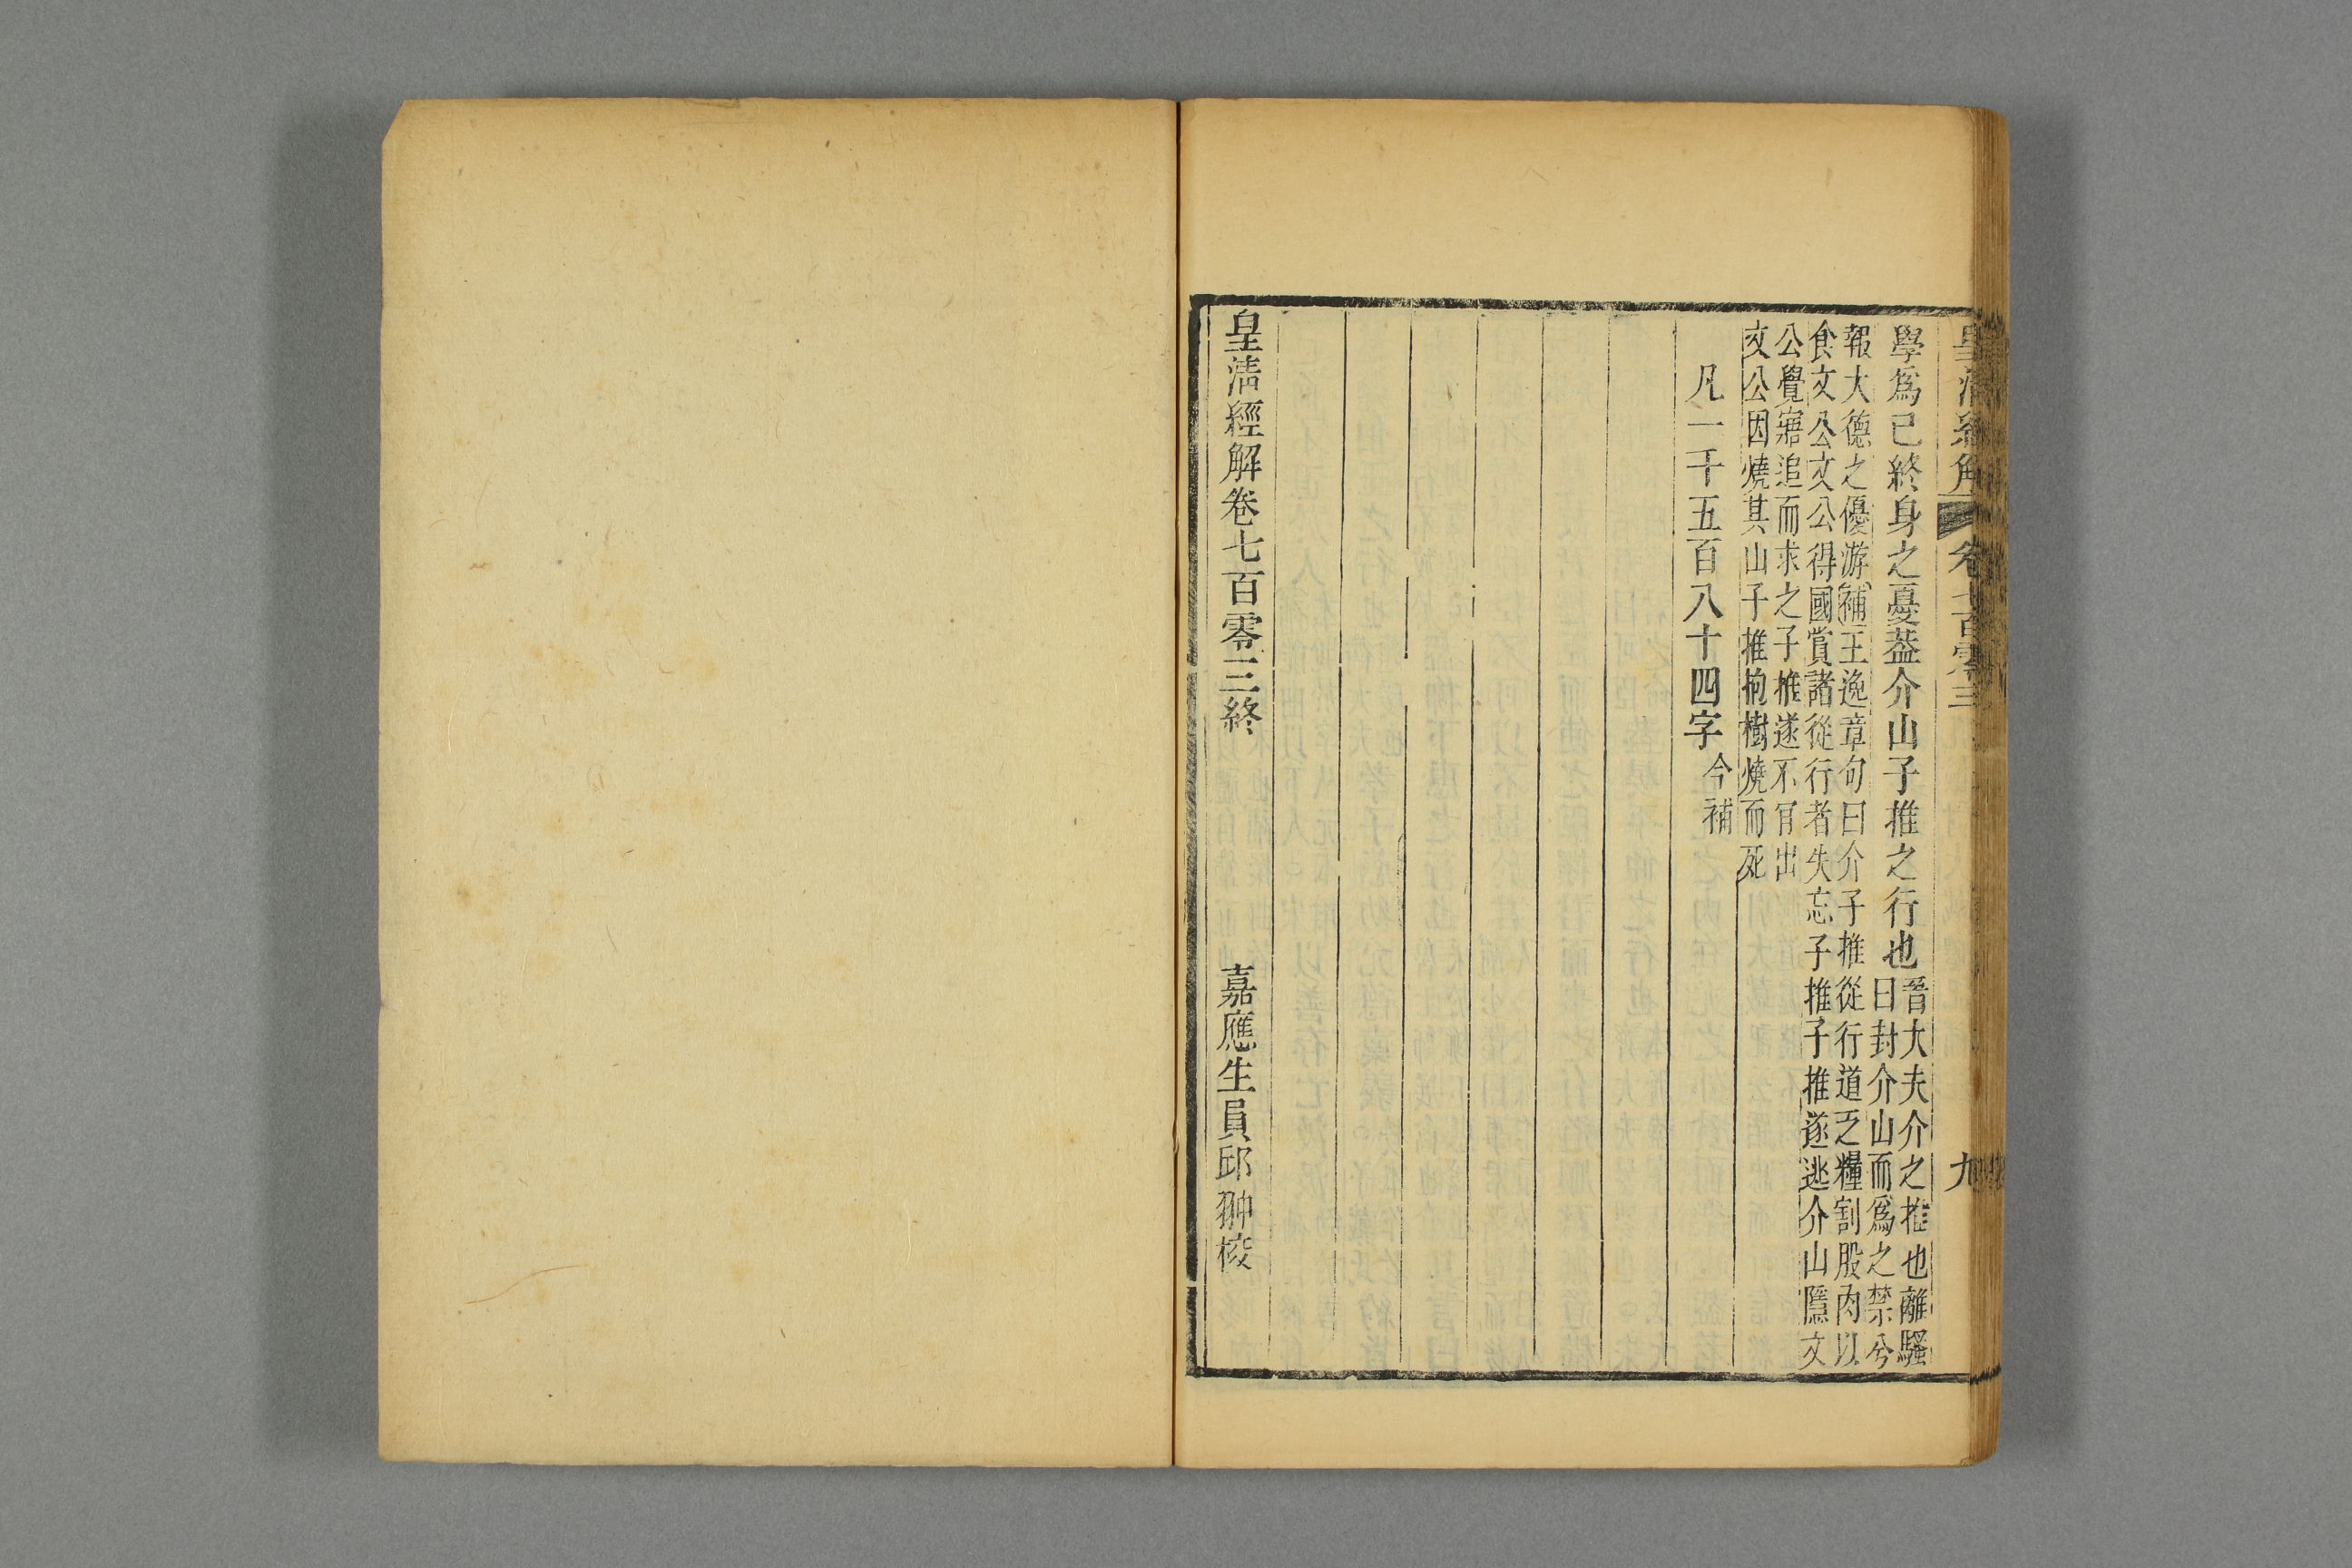 皇清經解 卷七百零三 九
學爲己終身之憂葢介山子推之行也
晉大夫介之推也離騷
曰封介山而爲之禁兮
報大德之優游補王逸章句曰介子推從行道乏糧割股肉以
食文公文公得國賞諸從行者失忘子推子推遂逃介山隱文
公覺寤追而求之子推遂不肎出
文公因燒其山子推抱樹燒而死
凡一千五百八十四字今補
皇清經解卷七百零三終 嘉應生員邱翀校